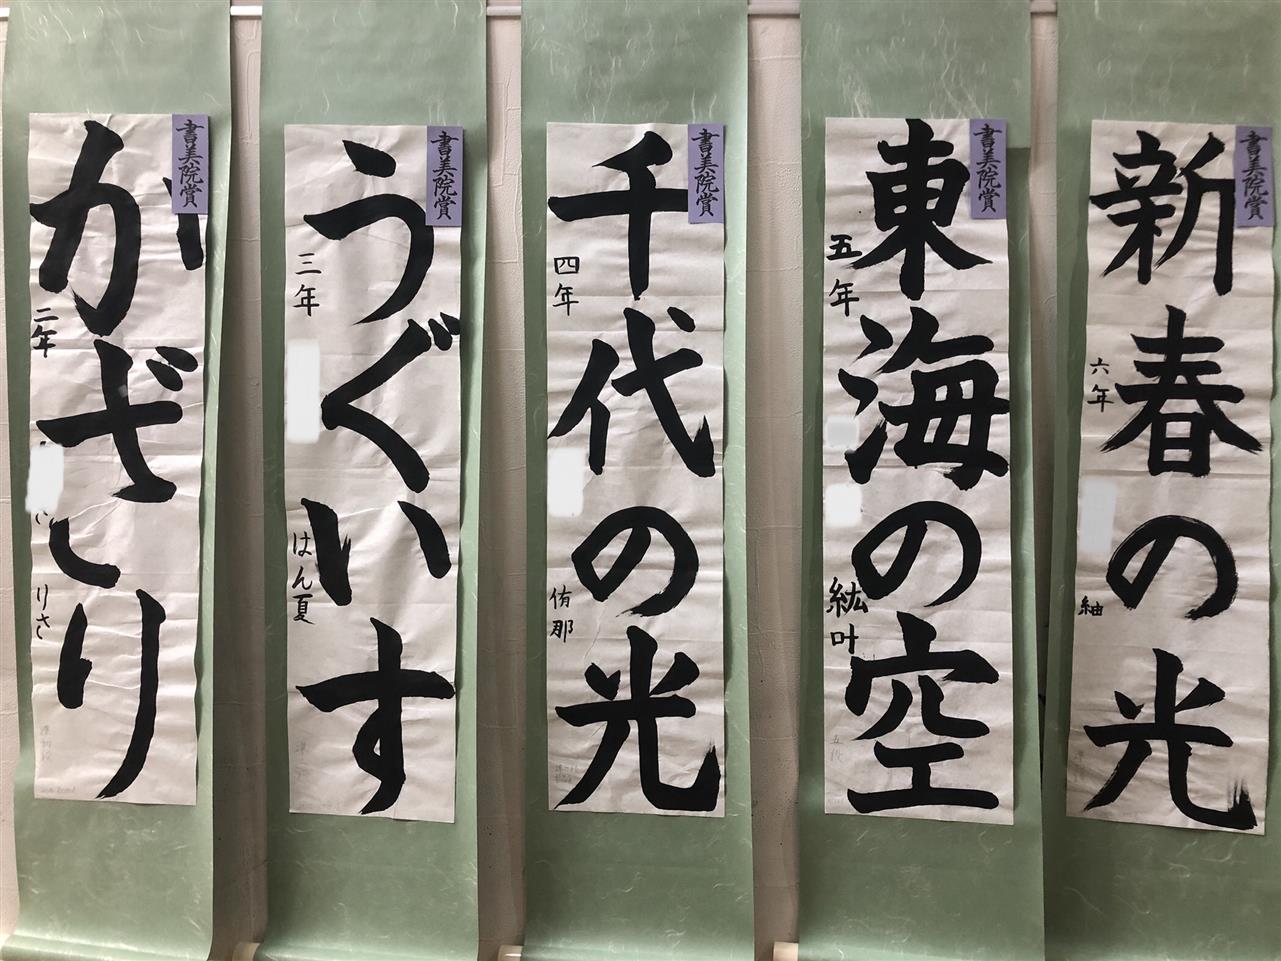 書美院賞
新春の光
六年
紬
書美院賞
東海の空
五年
紘叶
書美院賞
千代の光
四年
侑那
書美院賞
うぐいす
三年
はん夏
書美院賞
かざり
二年
りさ